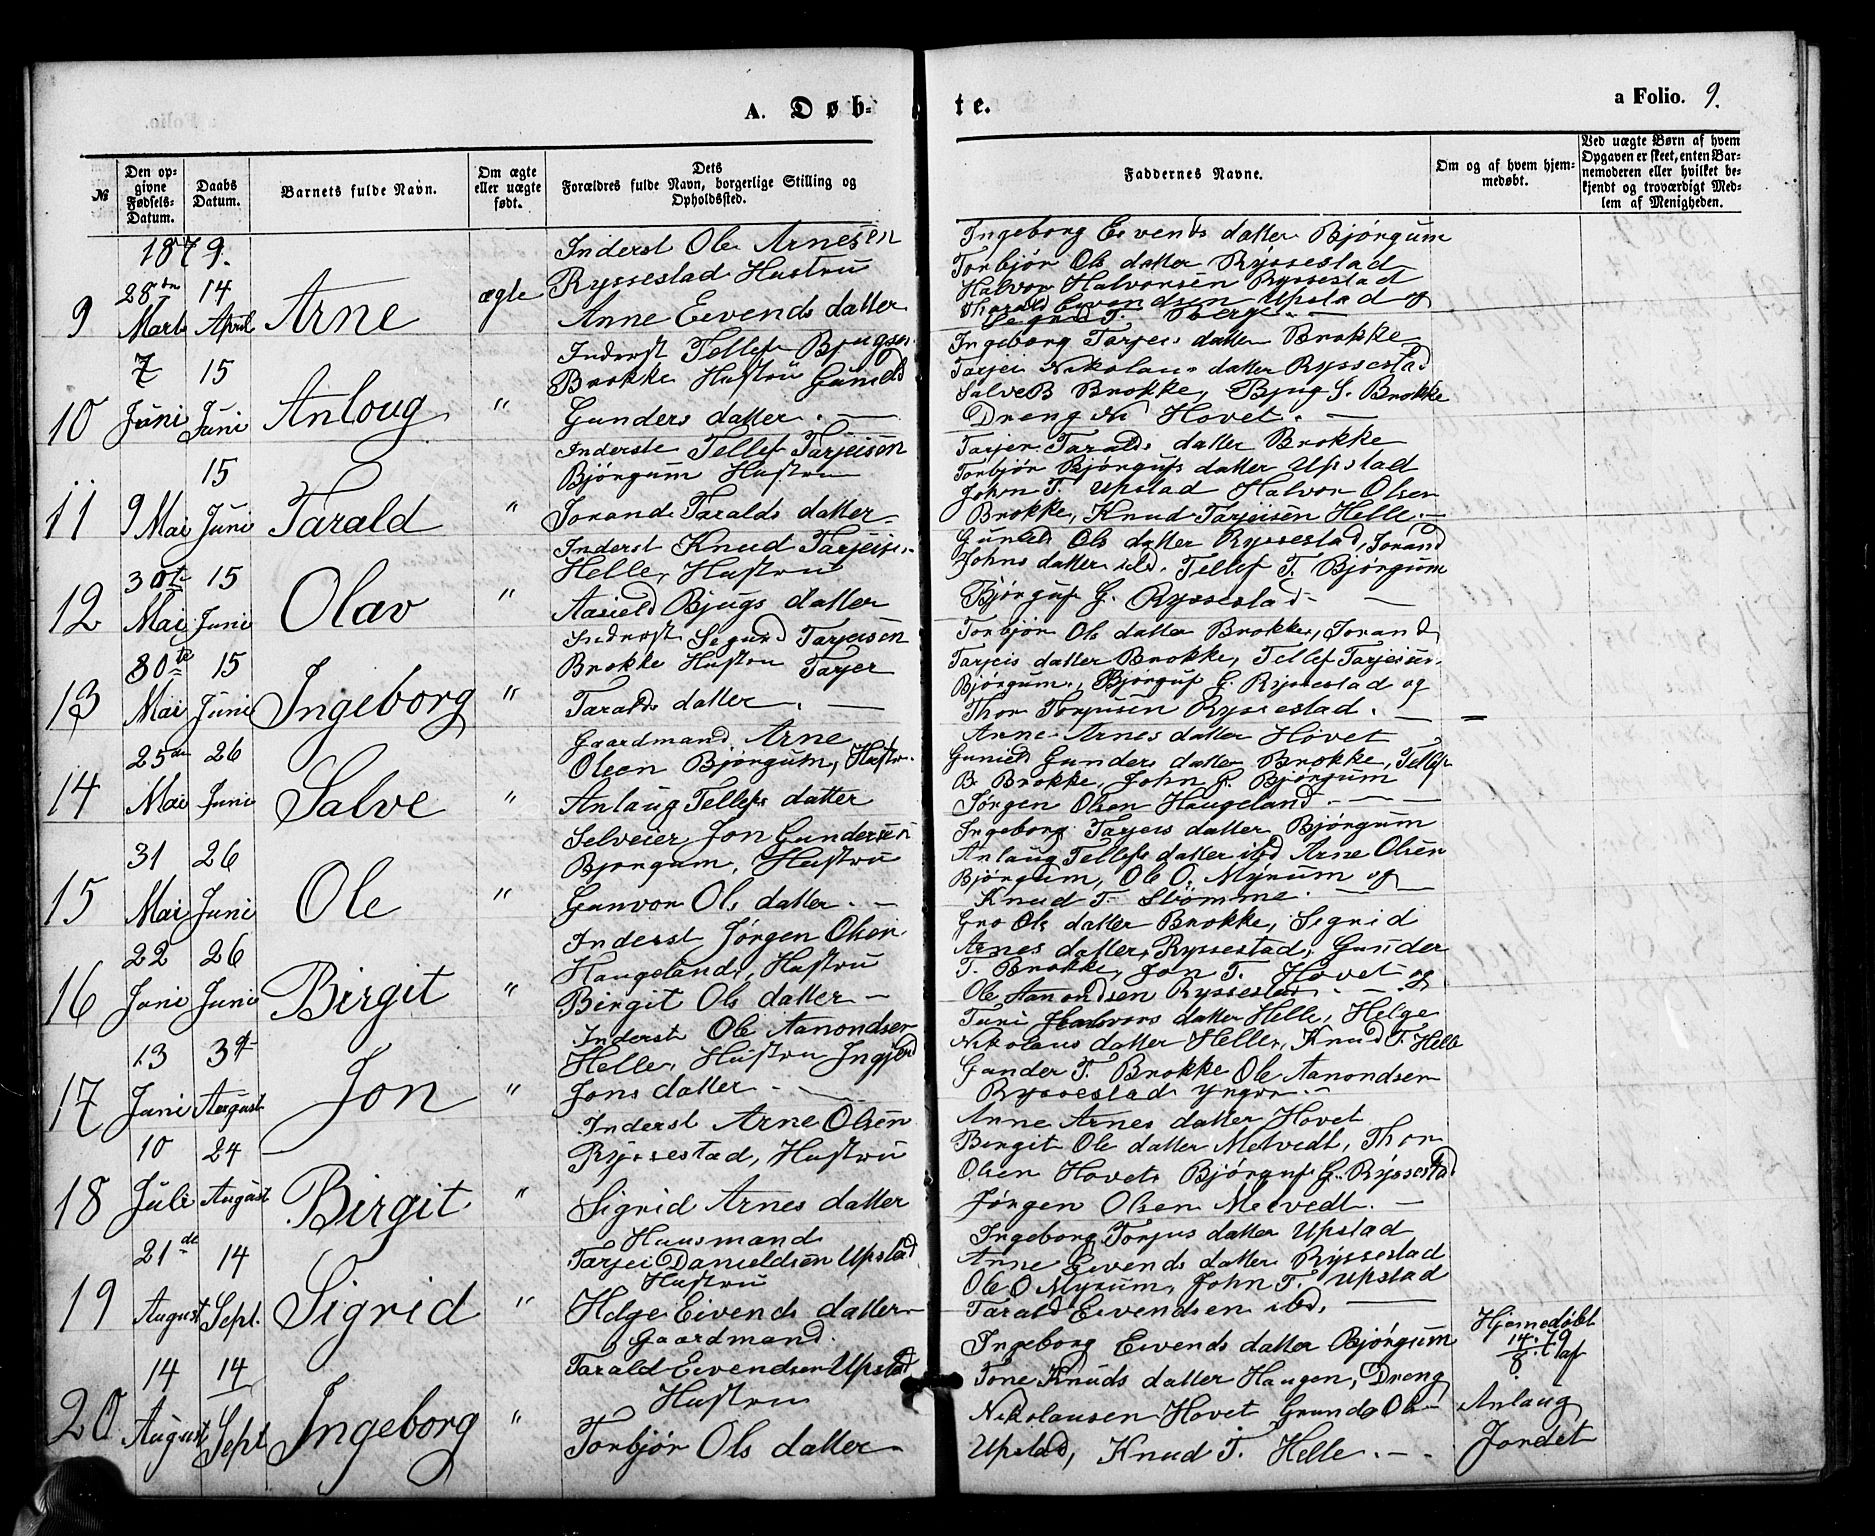 A. Døb-
te.
a Folio. 9.
№
Den opgivne Fødsels-Datum.
Daabs Datum.
Barnets fulde Navn.
Om ægte eller uægte født.
Dets Forældres fulde Navn, borgerlige Stilling og Opholdssted.
Faddernes Navne.
Om og af hvem hjemmedøbt.
Ved uægte Børn af hvem Opgaven er skeet, enten Barnemoderen eller hvilket bekjendt og troværdigt Medlem af Menigheden.
1879.
9
28de Marts
14 April
Arne
ægte
Inderst Ole Arnesen
Ryssestad Hustru
Anne Eivends datter
Ingeborg Eivends datter Bjørgum
Torbjør Ols datter Ryssestad
Halvor Halvorsen Ryssestad
Tharald Eivendsen Upstad og
Sigrid T. Berge. —
10
7 Juni
15 Juni
Anloug
"
Inderst Tellef Bjugsen
Brokke Hustru Gunild
Gunders datter. —
Ingeborg Tarjeis datter Brokke
Tarjei Nikolaus datter Ryssestad
Salve B Brokke, Bjug S. Brokke
Dreng N Hovet. —
11
9 Mai
15 Juni
Tarald
"
Inderste Tellef Tarjeisen
Bjørgum Hustru
Jorand Taralds datter
Tarjer Taralds datter Brokke
Torbjør Bjørgufs datter Upstad
John T. Upstad Halvor Olsen
Brokke, Knud Tarjeisen Helle. —
12
30te Mai
15 Juni
Olav
"
Inderst Knud Tarjeisen
Helle, Hustru
Aasield Bjugs datter
Gunild Ols datter Ryssestad, Jorand
Johns datter ibd. Tellef T. Bjørgum
Bjørguf G. Ryssestad —
13
30te Mai
15 Juni
Ingeborg
"
Inderst Sigurd Tarjeisen
Brokke Hustru Tarjer
Taralds datter. —
Torbjør Ols datter Brokke, Jorand
Tarjeis datter Brokke, Tellef Tarjeisen
Bjørgum, Bjørguf G. Ryssestad og
Thor Torjusen Ryssestad. —
14
25de Mai
26 Juni
Salve
"
Gaardmand Arne
Olsen Bjørgum, Hustru
Anlaug Tellefs datter
Anne Arnes datter Hovet
Gunild Gunders datter Brokke, Tellef
B. Brokke, John G. Bjørgum
Jørgen Olsen Haugeland. —
15
31 Mai
26 Juni
Ole
"
Selveier Jon Gundersen
Bjørgum, Hustru
Gunvor Ols datter. —
Ingeborg Tarjeis datter Bjørgum
Anlaug Tellefs datter ibd Arne Olsen
Bjørgum, Ole O. Myrum og
Knud T. Strømme. —
16
22 Juni
26 Juni
Birgit
"
Inderst Jørgen Olsen
Haugeland, Hustru
Birgit Ols datter —
Gro Ols datter Brokke, Sigrid
Arnes datter Ryssestad, Gunder
T. Brokke, Jon T. Hovet og
Ole Aanondsen Ryssestad. —
17
13 Juni
3die August
Jon
"
Inderst Ole Aanondsen
Helle, Hustru Ingjerd
Jons datter —
Turi Halvors datter Helle, Helge
Nikolaus datter Helle, Knud T. Helle
Gunder T. Brokke Ole Aanondsen
Ryssestad yngre. —
18
10 Juli
24 August
Birgit
"
Inderst Arne Olsen
Ryssestad, Hustru
Sigrid Arnes datter
Anne Arnes datter Hovet
Birgit Ols datter Melvedt, Thor
Olsen Hovet Bjørguf G. Ryssestad
Jørgen Olsen Melvedt. —
19
21de August
14 Sept.
Sigrid
"
Huusmand
Tarjei Danieldsen Upstad
Hustru
Helge Eivends datter
Ingeborg Torjus datter Upstad
Anne Eivends datter Ryssestad
Ole O Myrum, John T. Upstad
Tarald Eivendsen ibd. —
20
14 August
14 Sept
Ingeborg
"
Gaardmand.
Tarald Eivendsen Upstad
Hustru
Torbjør Ols datter
Ingeborg Eivends datter Bjørgum
Tone Knuds datter Haugen, Dreng
Nikolausen Hovet Gunds Ols
Upstad, Knud T. Helle. —
Hjemedøbt
14/8. 79 af
Anlaug
Jordet